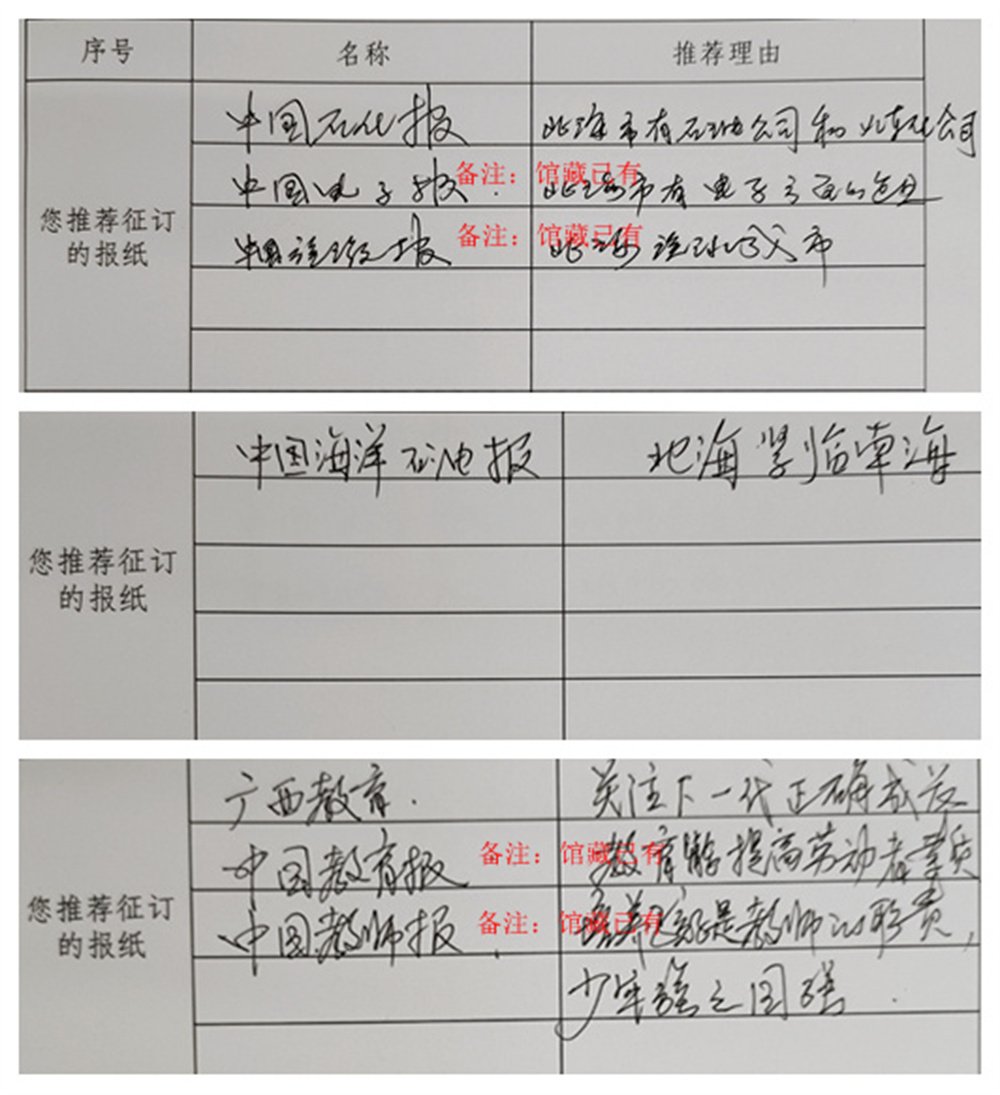 序号 名称 推荐理由
中国石化报 北海市有石油公司和北海石化公司
备注：馆藏已有
中国电子报. 北海市有电子
备注：馆藏已有
中国旅游报 北海旅游城市
您推荐征订
的报纸
中国海洋石油报 北海紧临南海
您推荐征订
的报纸
广西教育. 关注下一代正确成长
备注：馆藏已有
中国教育报 教育能提高劳动者素质
备注：馆藏已有
中国教师报, 是教师的职责,
您推荐征订
的报纸
少年强之国强.